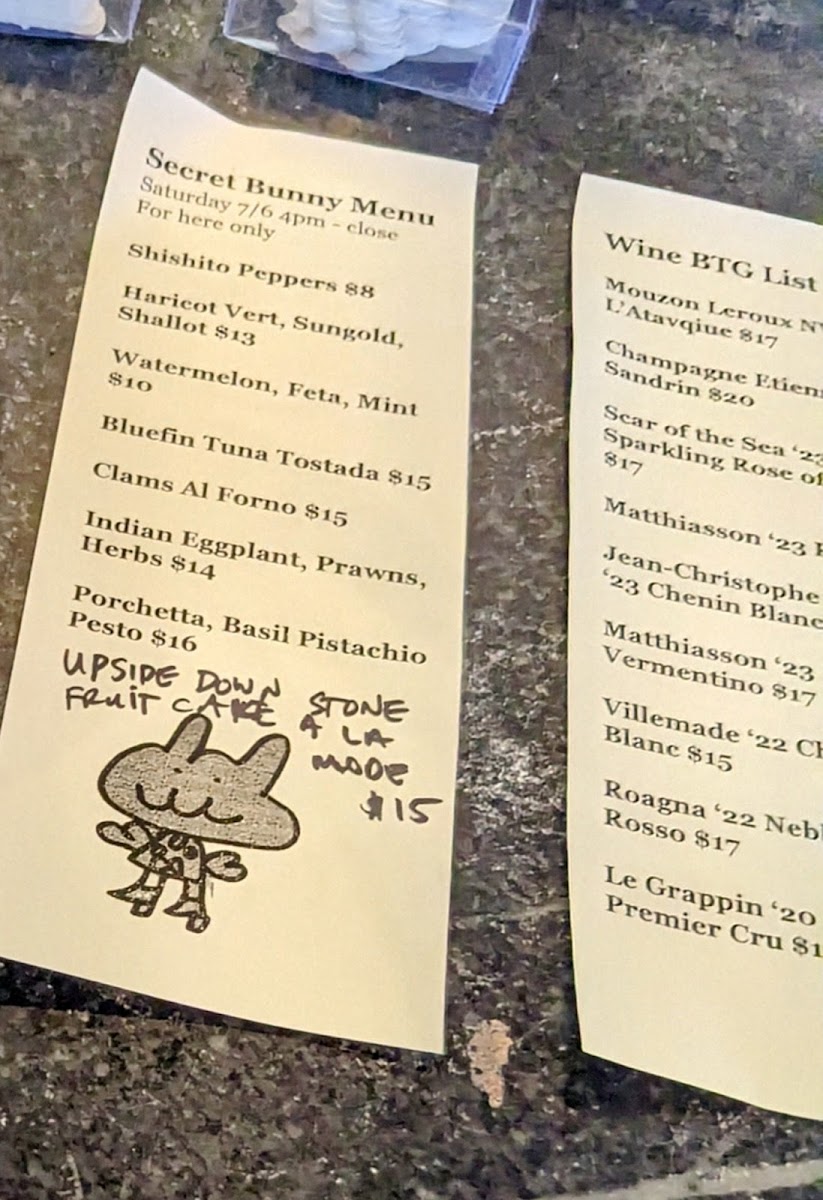 Secret Bunny Menu
Saturday 7/6 4pm - close
For here only
Shishito Peppers $8
Haricot Vert, Sungold,
Shallot $13
Watermelon, Feta, Mint
$10
Bluefin Tuna Tostada $15
Clams Al Forno $15
Indian Eggplant, Prawns,
Herbs $14
Porchetta, Basil Pistachio
Pesto $16
UPSIDE DOWN STONE
FRUIT CAKE A LA
MODE
$15
Wine BTG List
Mouzon Leroux
L'Atavqiue $17
Champagne
Sandrin $20
Scar of the Sea '23
Sparkling Rose of
$17
Matthiasson '23
Jean-Christophe
'23 Chenin Blanc
Matthiasson '23
Vermentino $17
Villemade '22
Blanc $15
Roagna '22
Rosso $17
Le Grappin '20
Premier Cru